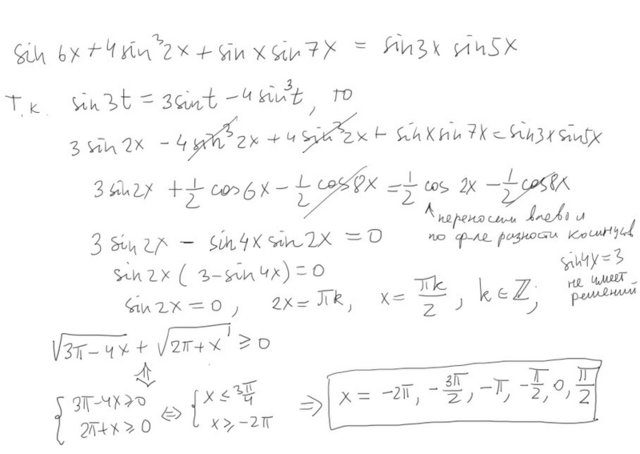 sin 6x + 4 sin³2x + sin x sin 7x = sin 3x sin 5x
Т.к. sin 3t = 3 sin t − 4 sin³t, то
3 sin 2x − 4 sin³2x + 4 sin³2x + sin x sin 7x = sin 3x sin 5x
3 sin 2x + 1/2 cos 6x − 1/2 cos 8x = 1/2 cos 2x − 1/2 cos 8x
↑ переносим влево и
по ф-ле разности косинусов
3 sin 2x − sin 4x sin 2x = 0
sin 2x (3 − sin 4x) = 0
sin 2x = 0, 2x = πk, x = πk/2, k ∈ ℤ;
sin 4x = 3
не имеет
решений
√(3π − 4x) + √(2π + x) ≥ 0
⇕
{ 3π − 4x ≥ 0 ⇔ { x ≤ 3π/4
2π + x ≥ 0 x ≥ −2π
⇒ x = −2π, −3π/2, −π, −π/2, 0, π/2